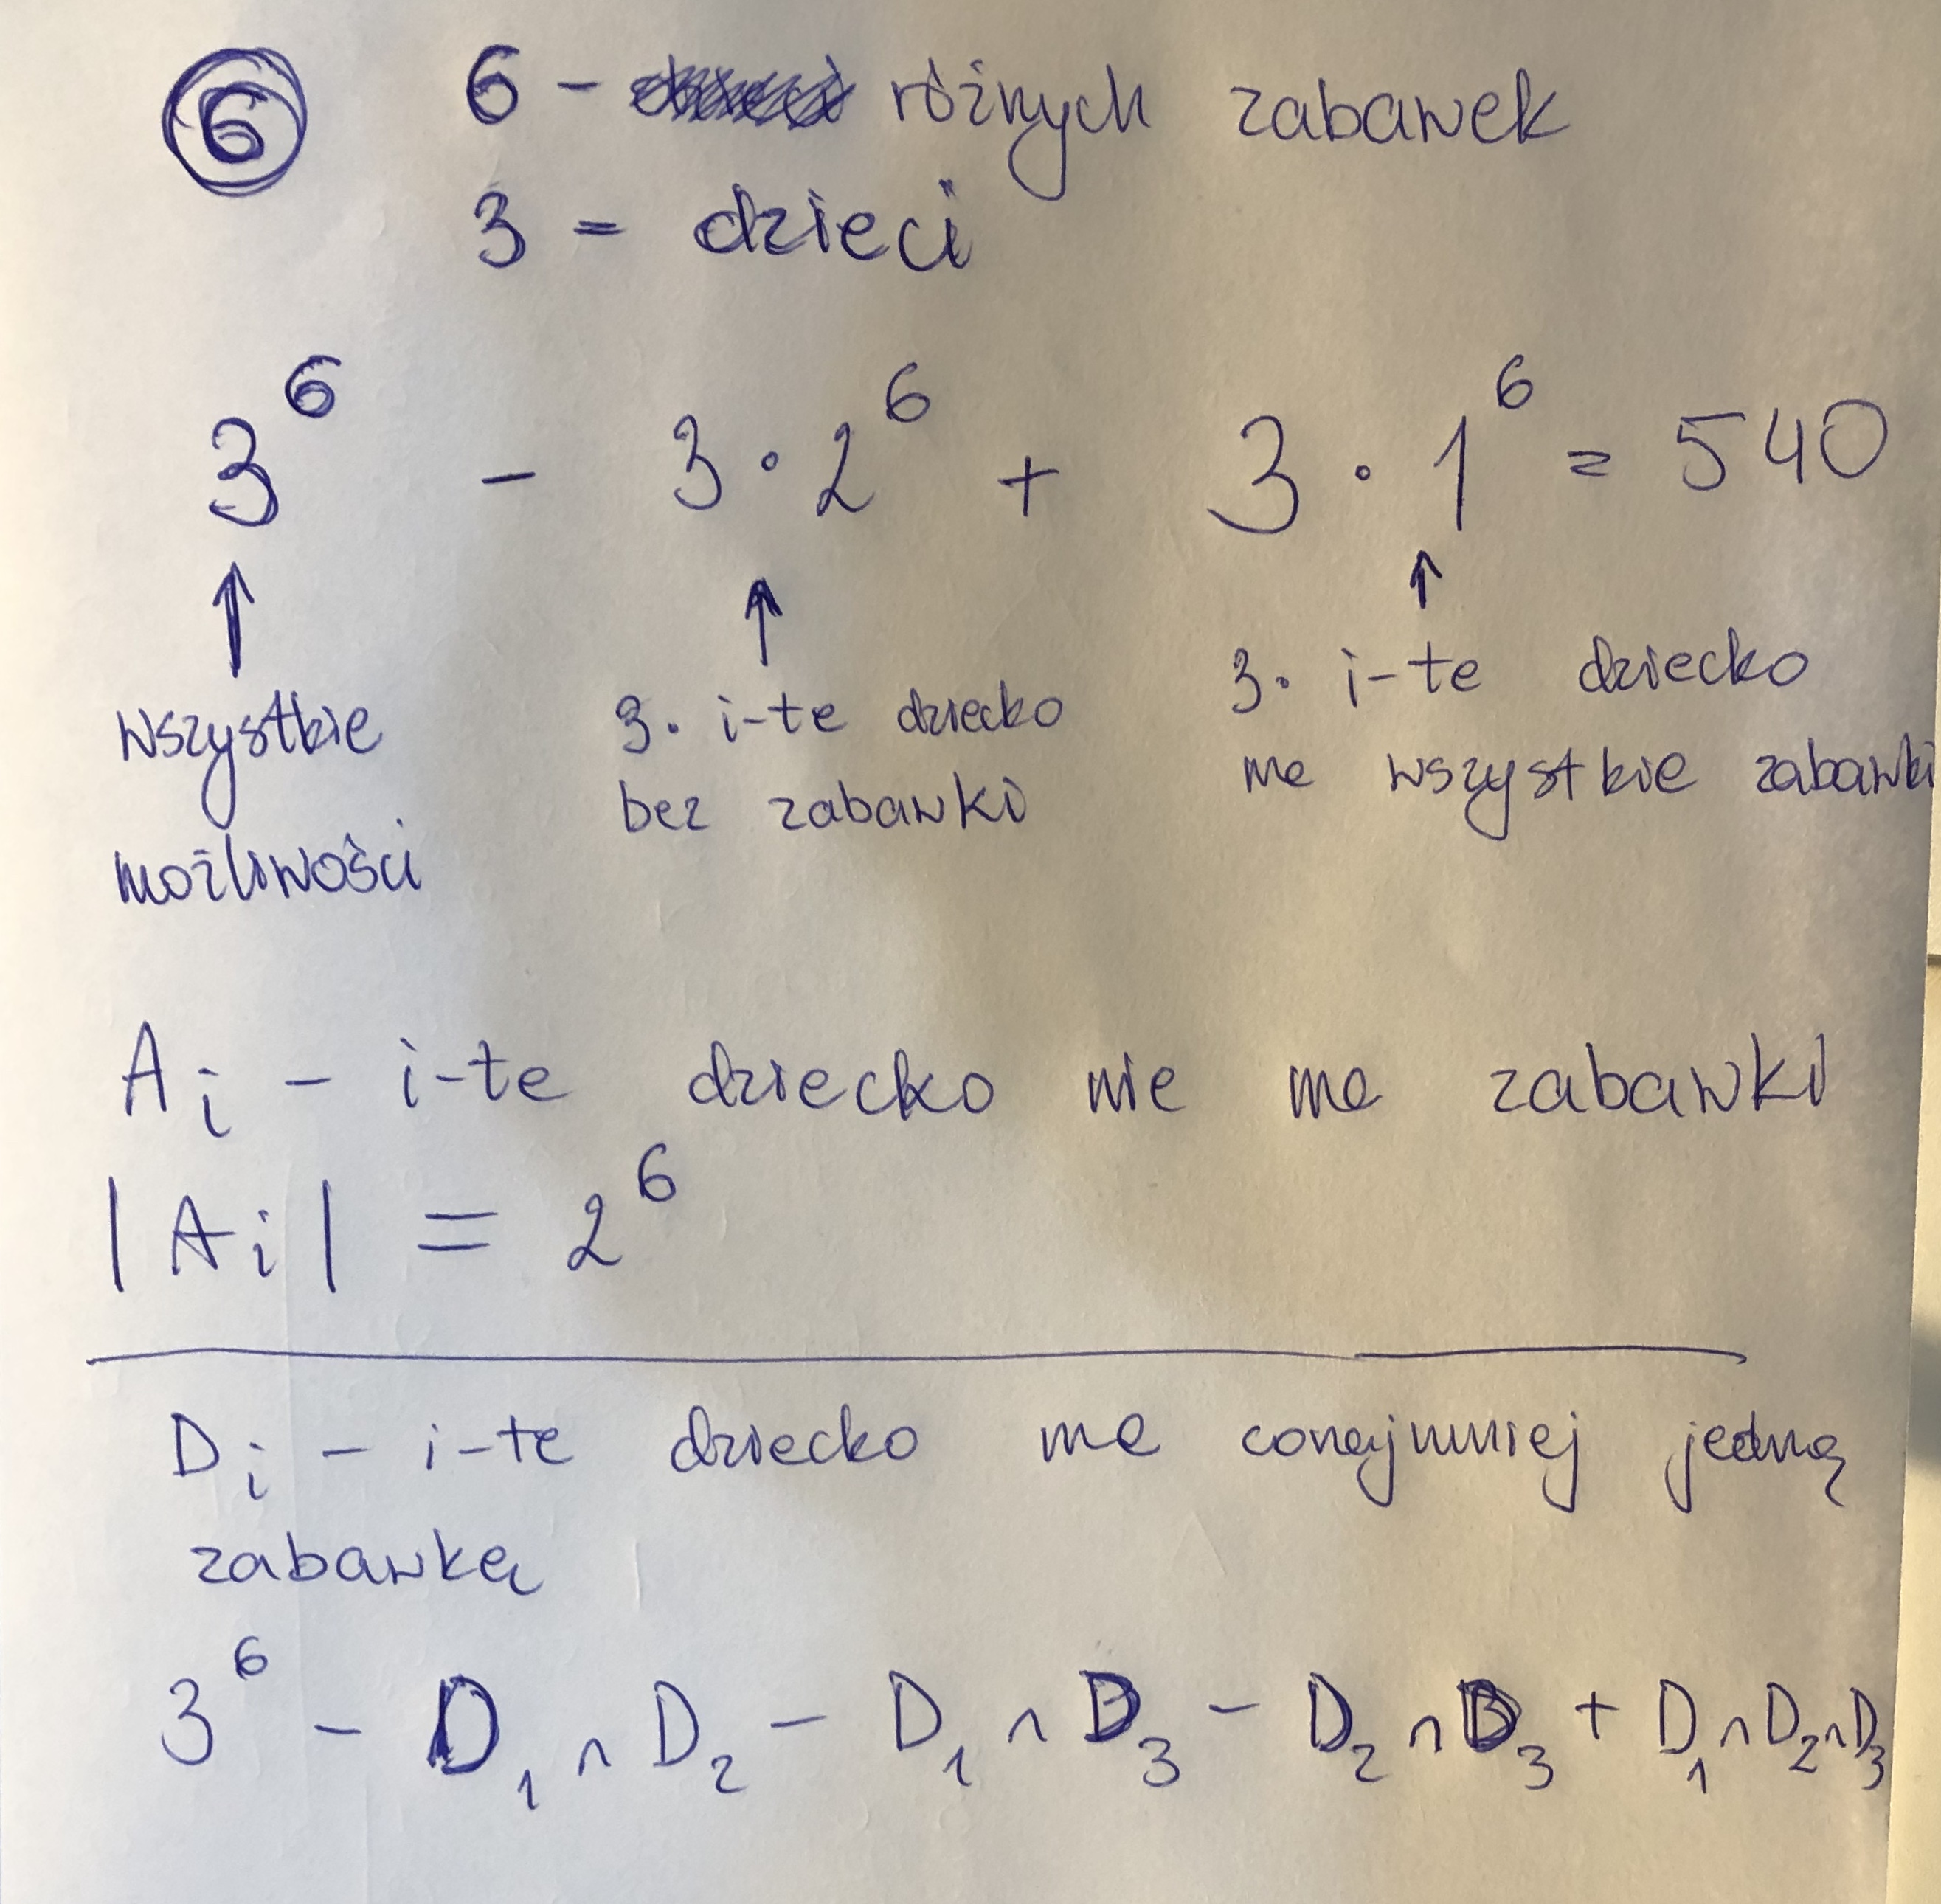 6 6 - różnych zabawek
3 - dzieci
3⁶ - 3 · 2⁶ + 3 · 1⁶ = 540
↑ ↑ ↑
wszystkie 3. i-te dziecko 3. i-te dziecko
możliwości bez zabawki ma wszystkie zabawki
Aᵢ - i-te dziecko nie ma zabawki
|Aᵢ| = 2⁶
Dᵢ - i-te dziecko ma conajmniej jedną
zabawkę
3⁶ - D₁ ∩ D₂ - D₁ ∩ D₃ - D₂ ∩ D₃ + D₁ ∩ D₂ ∩ D₃